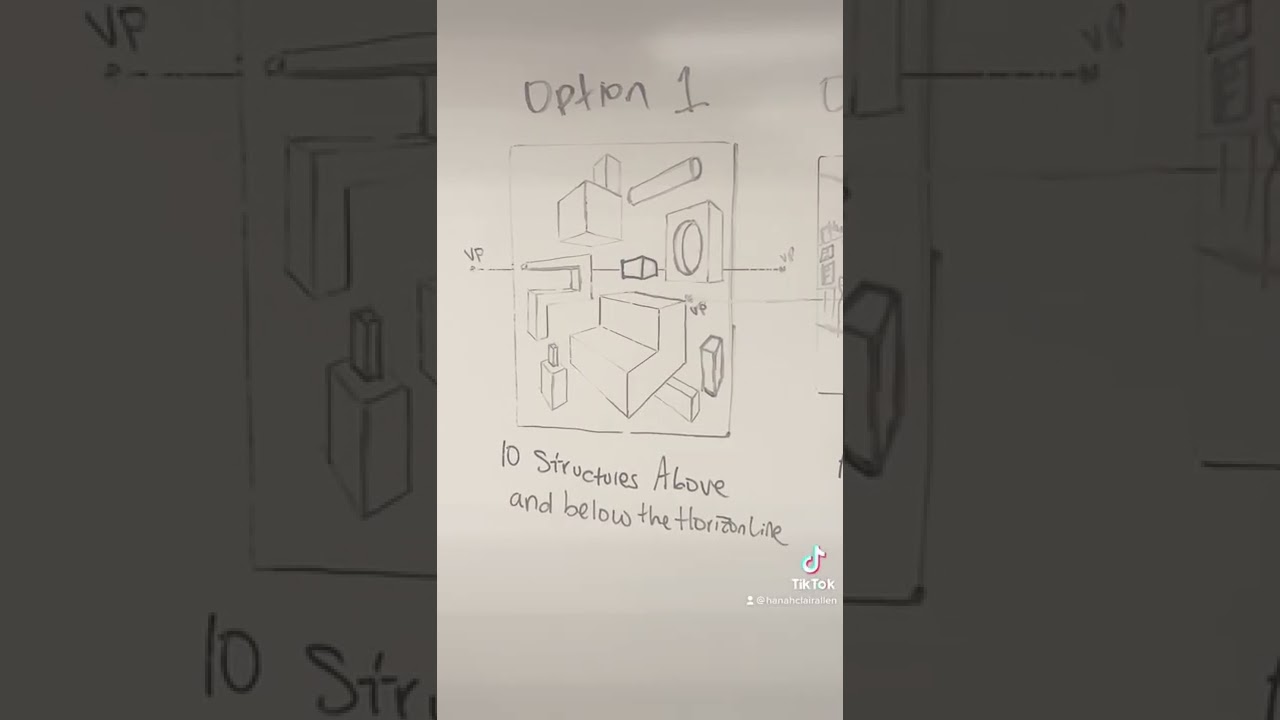 VP
VP
Option 1
VP
VP
VP
10 Structures Above
and below the Horizon Line
10 Str
TikTok
@hanahclairallen